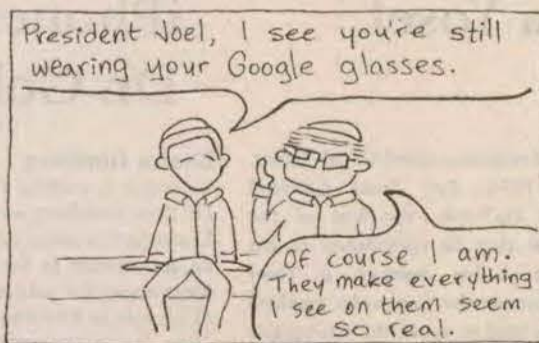 President Joel, I see you're still
wearing your Google glasses.
Of course I am.
They make everything
I see on them seem
so real.